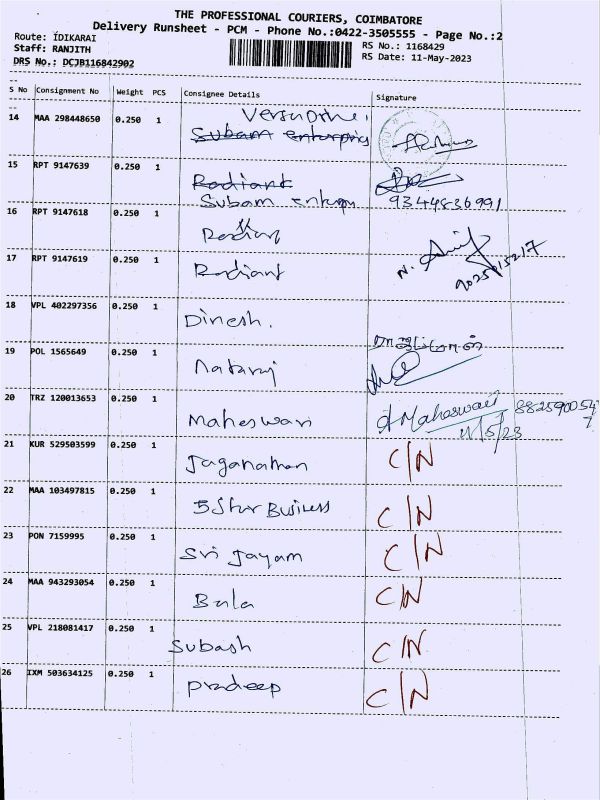 THE PROFESSIONAL COURIERS, COIMBATORE
Delivery Runsheet - PCM - Phone No.:0422-3505555 - Page No.:2
Route: IDIKARAI
RS No.: 1168429
Staff: RANJITH
RS Date: 11-May-2023
DRS No.: DCJB116842902
S No Consignment No Weight PCS Consignee Details Signature
14 MAA 298448650 0.250 1 Subam enterpris
15 RPT 9147639 0.250 1 Radiant
Subam 9344836991
16 RPT 9147618 0.250 1
17 RPT 9147619 0.250 1 Radiant N.
18 VPL 402297356 0.250 1 Dinesh.
19 POL 1565649 0.250 1 Nataraj
20 TRZ 120013653 0.250 1 Maheswari Maheswari
11/5/23
21 KUR 529503599 0.250 1 Jaganathan C/N
22 MAA 103497815 0.250 1 5 Star Business C/N
23 PON 7159995 0.250 1 Sri Jayam C/N
24 MAA 943293054 0.250 1 Bala C/N
25 VPL 218081417 0.250 1 Subash C/N
26 IXM 503634125 0.250 1 Pradeep C/N